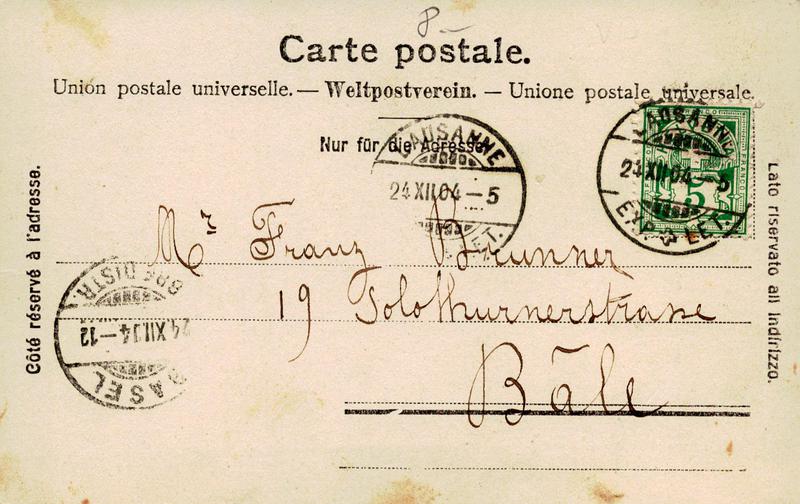 8–
Carte postale.
Union postale universelle. — Weltpostverein. — Unione postale universale.
Nur für die Adresse.
LAUSANNE
24 XII.04 – 5
LAUSANNE
24 XII 04 – 5
EXP. LETT.
5
FRANCO
Côté réservé à l'adresse.
Lato riservato all indirizzo.
Mr Franz Brunner
19 Solothurnerstrasse
Bâle
BASEL
24 XII.04–12
BRF. DISTR.